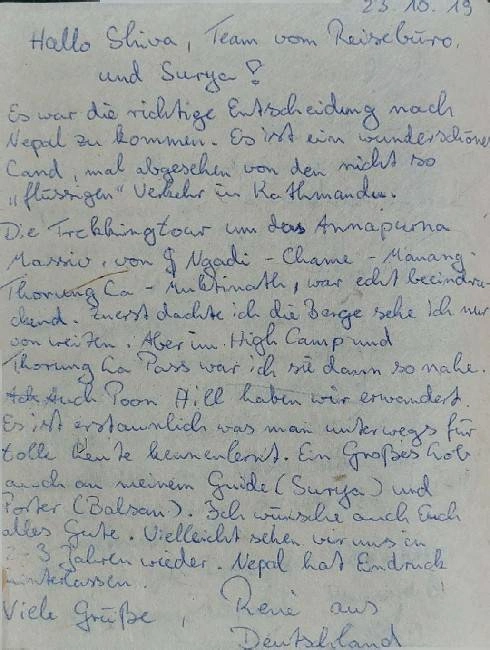 23.10.19
Hallo Shiva, Team vom Reisebüro,
und Surya!
Es war die richtige Entscheidung nach
Nepal zu kommen. Es ist ein wunderschönes
Land, mal abgesehen von den nicht so
„flüssigen" Verkehr in Kathmandu.
Die Trekkingtour um das Annapurna
Massiv, von Ngadi - Chame - Manang -
Thorung La - Muktinath, war echt beeindru-
ckend. Zuerst dachte ich die Berge sehe ich nur
von weiten. Aber im High Camp und
Thorung La Pass war ich sie dann so nahe.
Auch Poon Hill haben wir erwandert.
Es ist erstaunlich was man unterwegs für
tolle Leute kennenlernt. Ein Großes Lob
auch an meinem Guide (Surya) und
Porter (Balsam). Ich wünsche auch Euch
alles Gute. Vielleicht sehen wir uns in
2-3 Jahren wieder. Nepal hat Eindruck
hinterlassen.
Viele Grüße, René aus
Deutschland